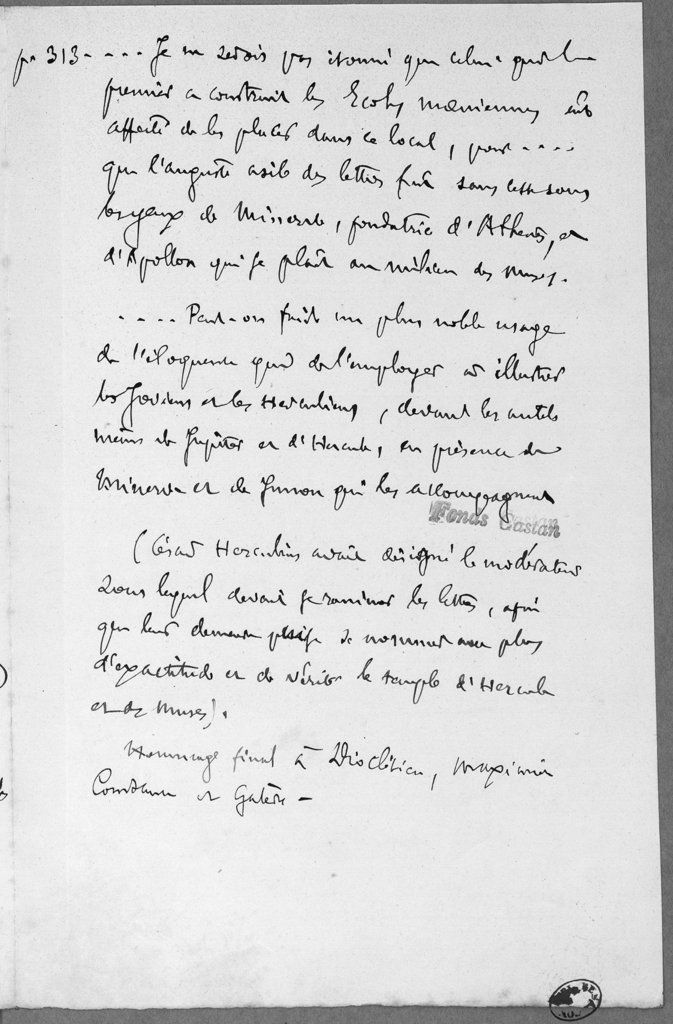 p. 313 - . . . . Je ne serois pas étonné que celui qui le
premier a construit les Ecoles mœniennes eût
affecté de les placer dans ce local, pour . . . .
que l'auguste asile des lettres fût sans cesse sous
les yeux de Minerve, fondatrice d'Athènes, et
d'Apollon qui se plaît au milieu des Muses.
. . . . Peut-on faire un plus noble usage
de l'éloquence que de l'employer à illustrer
les Joviens et les Herculiens, devant les autels
mêmes de Jupiter et d'Hercule, en présence de
Minerve et de Junon qui les accompagnent
Fonds Castan
(César Herculius avait désigné le modérateur
sous lequel devait se ranimer les lettres, afin
que leur demeure puisse se nommer avec plus
d'exactitude et de vérité le temple d'Hercule
et des Muses).
Hommage final à Dioclétien, Maximien
Constance et Galère -